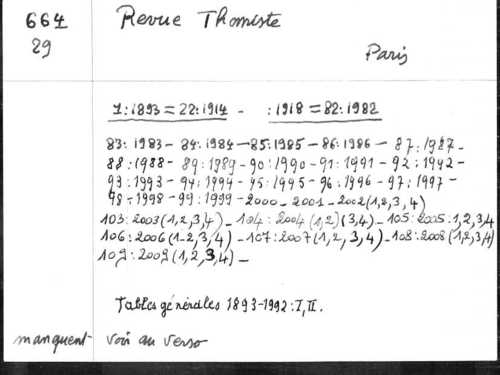 664 Revue Thomiste
29
Paris
1:1893 = 22:1914 - :1918 = 82:1982
83:1983 - 84:1984 - 85:1985 - 86:1986 - 87:1987 -
88:1988 - 89:1989 - 90:1990 - 91:1991 - 92:1992 -
93:1993 - 94:1994 - 95:1995 - 96:1996 - 97:1997 -
98:1998 - 99:1999 - 2000 - 2001 - 2002 (1,2,3,4)
103:2003 (1,2,3,4) - 104:2004 (1,2) (3,4) - 105:2005:1,2,3,4
106:2006 (1-2,3,4) - 107:2007 (1,2,3,4) - 108:2008 (1,2,3,4)
109:2009 (1,2,3,4) -
Tables générales 1893-1992: I, II.
manquent voir au verso